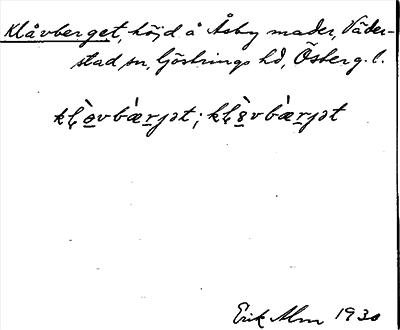 Klåvberget, höjd å Åsby mader, Väder-
stad sn, Göstrings hd, Österg. l.
kḷò̲vbæ̀r̲jət; kḷò̲vbæ̀r̲jət
Erik Alm 1930